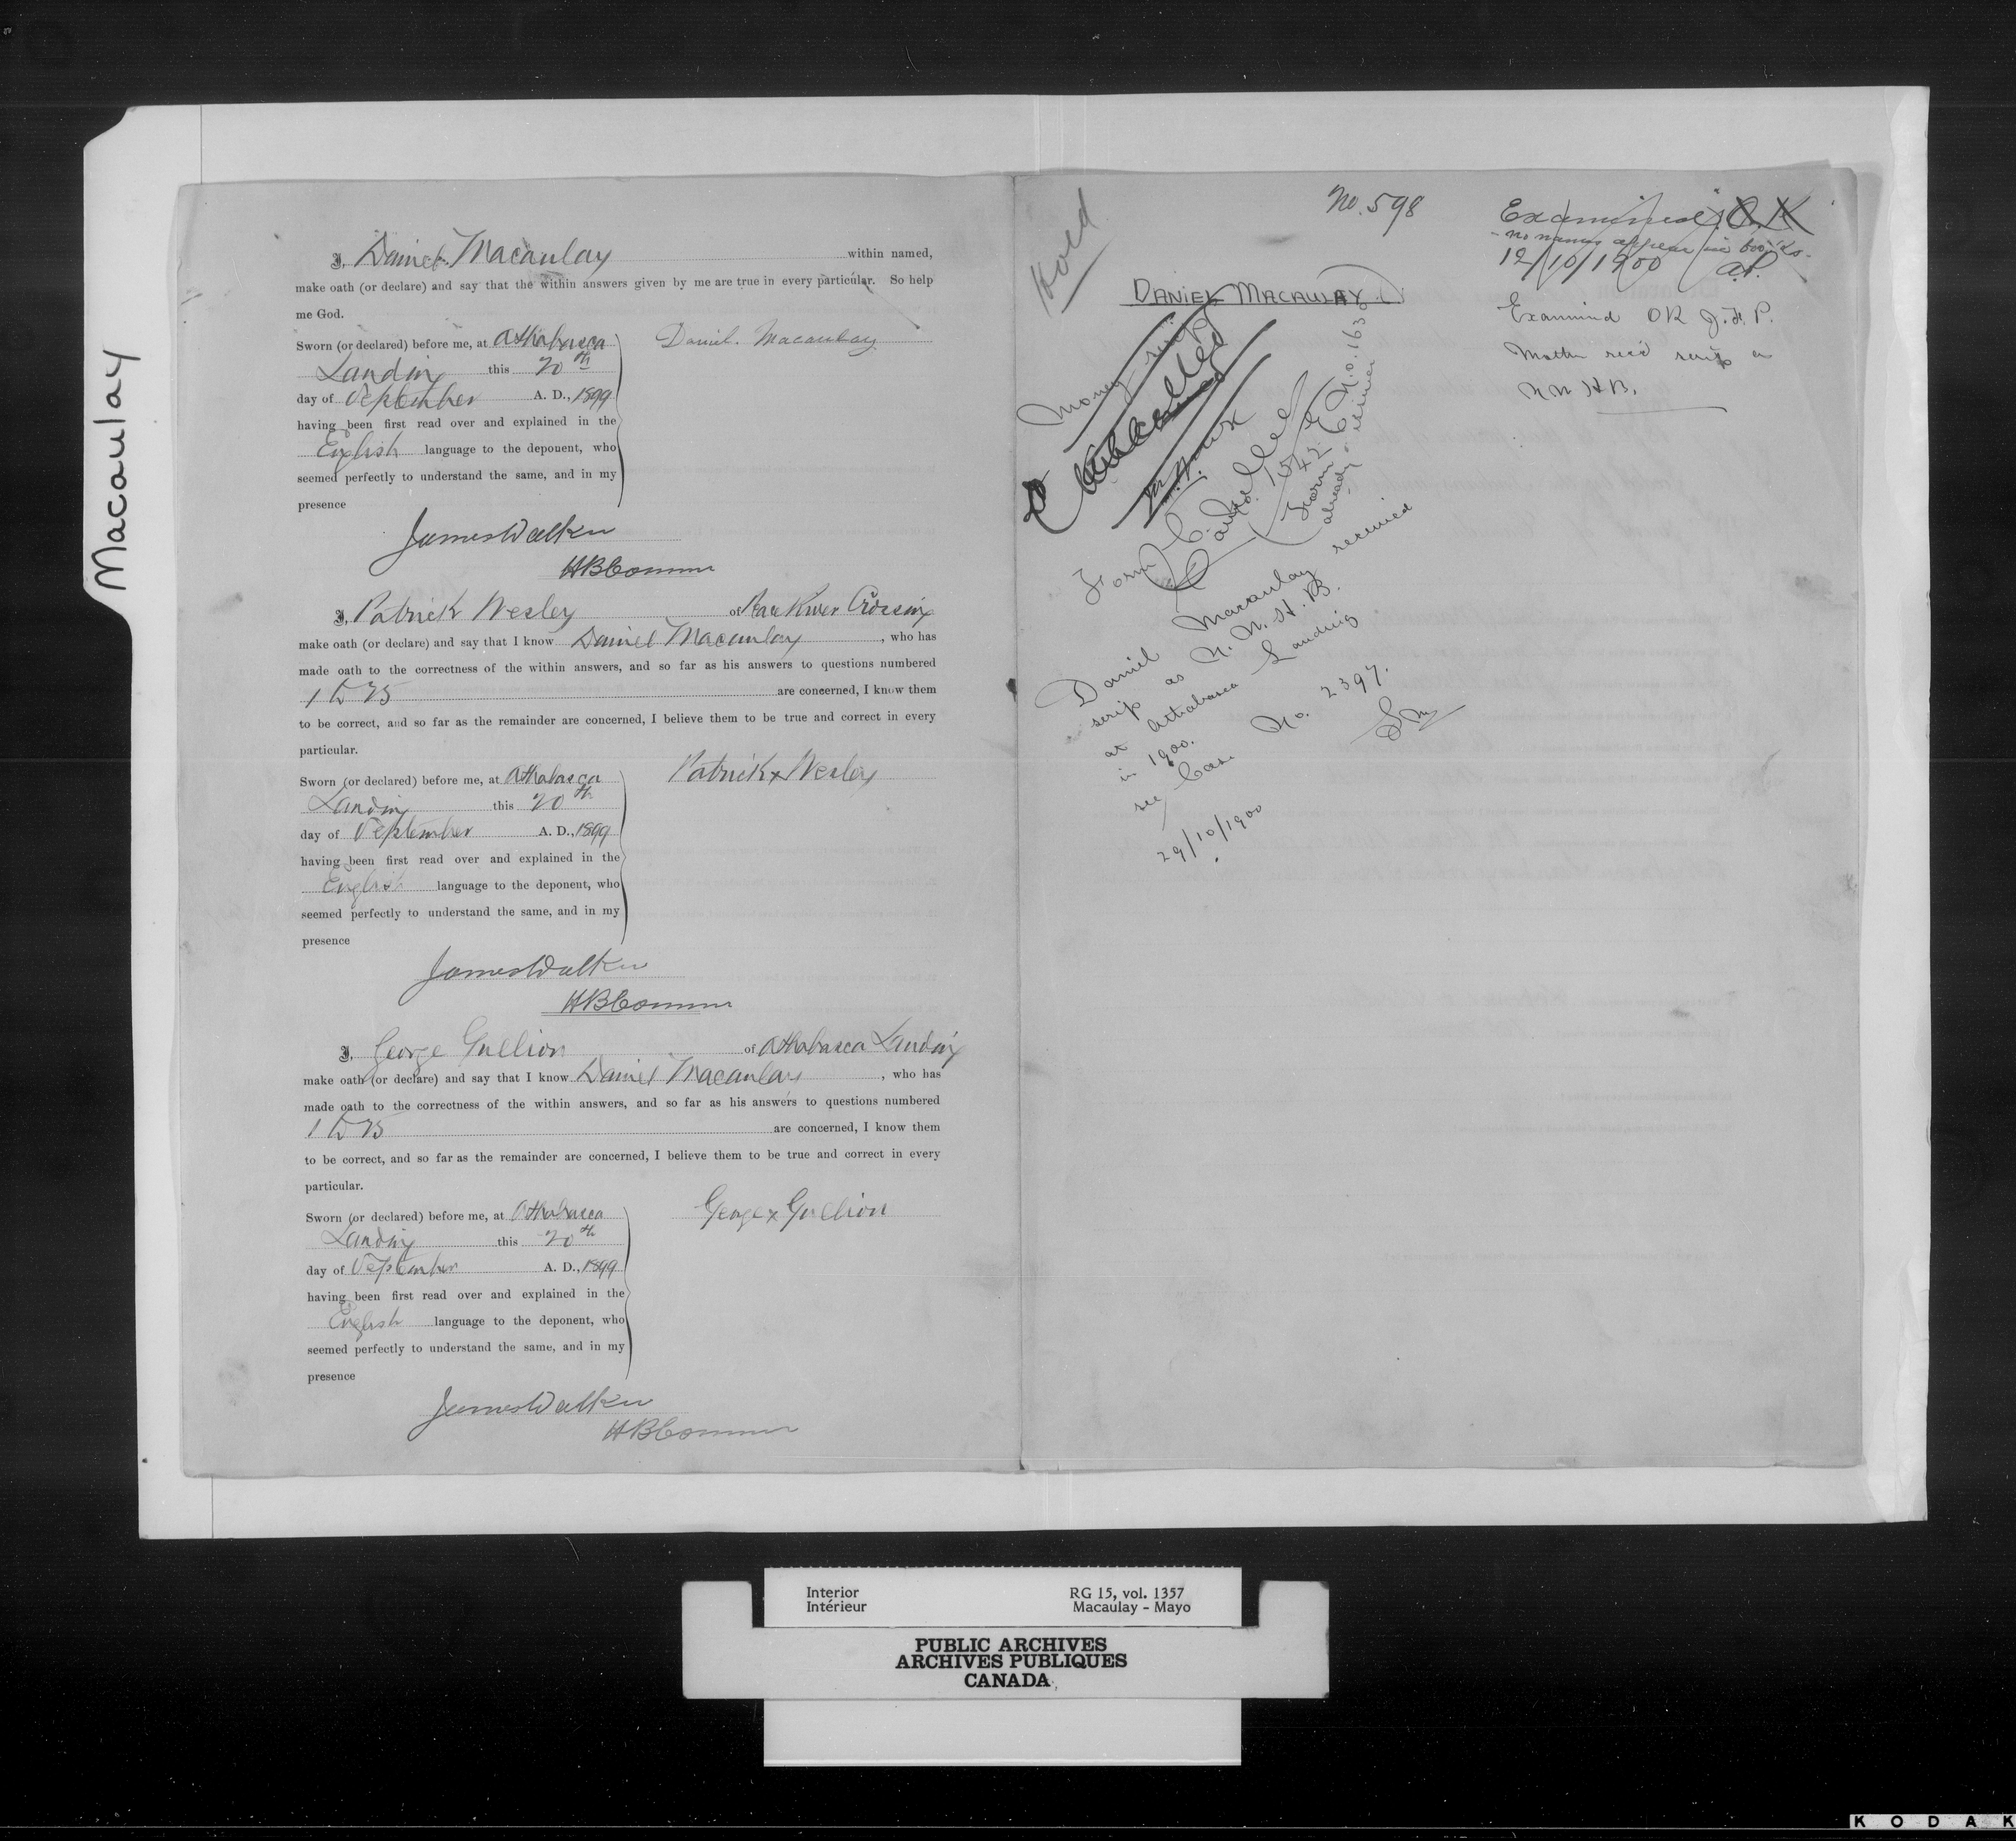 Macaulay
I, Daniel Macaulay within named,
make oath (or declare) and say that the within answers given by me are true in every particular. So help
me God.
Sworn (or declared) before me, at Athabasca
Landing this 20th
day of September A. D., 1899
having been first read over and explained in the
English language to the deponent, who
seemed perfectly to understand the same, and in my
presence
Daniel. Macaulay
James Walker
HBComm
I, Patrick Wesley of River Crossing
make oath (or declare) and say that I know Daniel Macaulay, who has
made oath to the correctness of the within answers, and so far as his answers to questions numbered
1 to 25 are concerned, I know them
to be correct, and so far as the remainder are concerned, I believe them to be true and correct in every
particular.
Sworn (or declared) before me, at Athabasca
Landing this 20th
day of September A. D., 1899
having been first read over and explained in the
English language to the deponent, who
seemed perfectly to understand the same, and in my
presence
Patrick x Wesley
James Walker
HBComm
I, George Gullion of Athabasca Landing
make oath (or declare) and say that I know Daniel Macaulay, who has
made oath to the correctness of the within answers, and so far as his answers to questions numbered
1 to 25 are concerned, I know them
to be correct, and so far as the remainder are concerned, I believe them to be true and correct in every
particular.
Sworn (or declared) before me, at Athabasca
Landing this 20th
day of September A. D., 1899
having been first read over and explained in the
English language to the deponent, who
seemed perfectly to understand the same, and in my
presence
George x Gullion
James Walker
HBComm
Hold
No. 598
DANIEL MACAULAY
Examined O.K
- no names appear in books.
12/10/1900 a.P.
Examined OK J.F.P.
Mother rec'd scrip as
N W H B.
Money scrip
Cancelled
Form C. No. 1542
Cancelled
Form E No. 1630
already
Daniel Macaulay received
scrip as N. W. H. B.
at Athabasca Landing
in 1900.
see Case No. 2397.
29/10/1900
Interior
Intérieur
RG 15, vol. 1357
Macaulay - Mayo
PUBLIC ARCHIVES
ARCHIVES PUBLIQUES
CANADA
KODAK